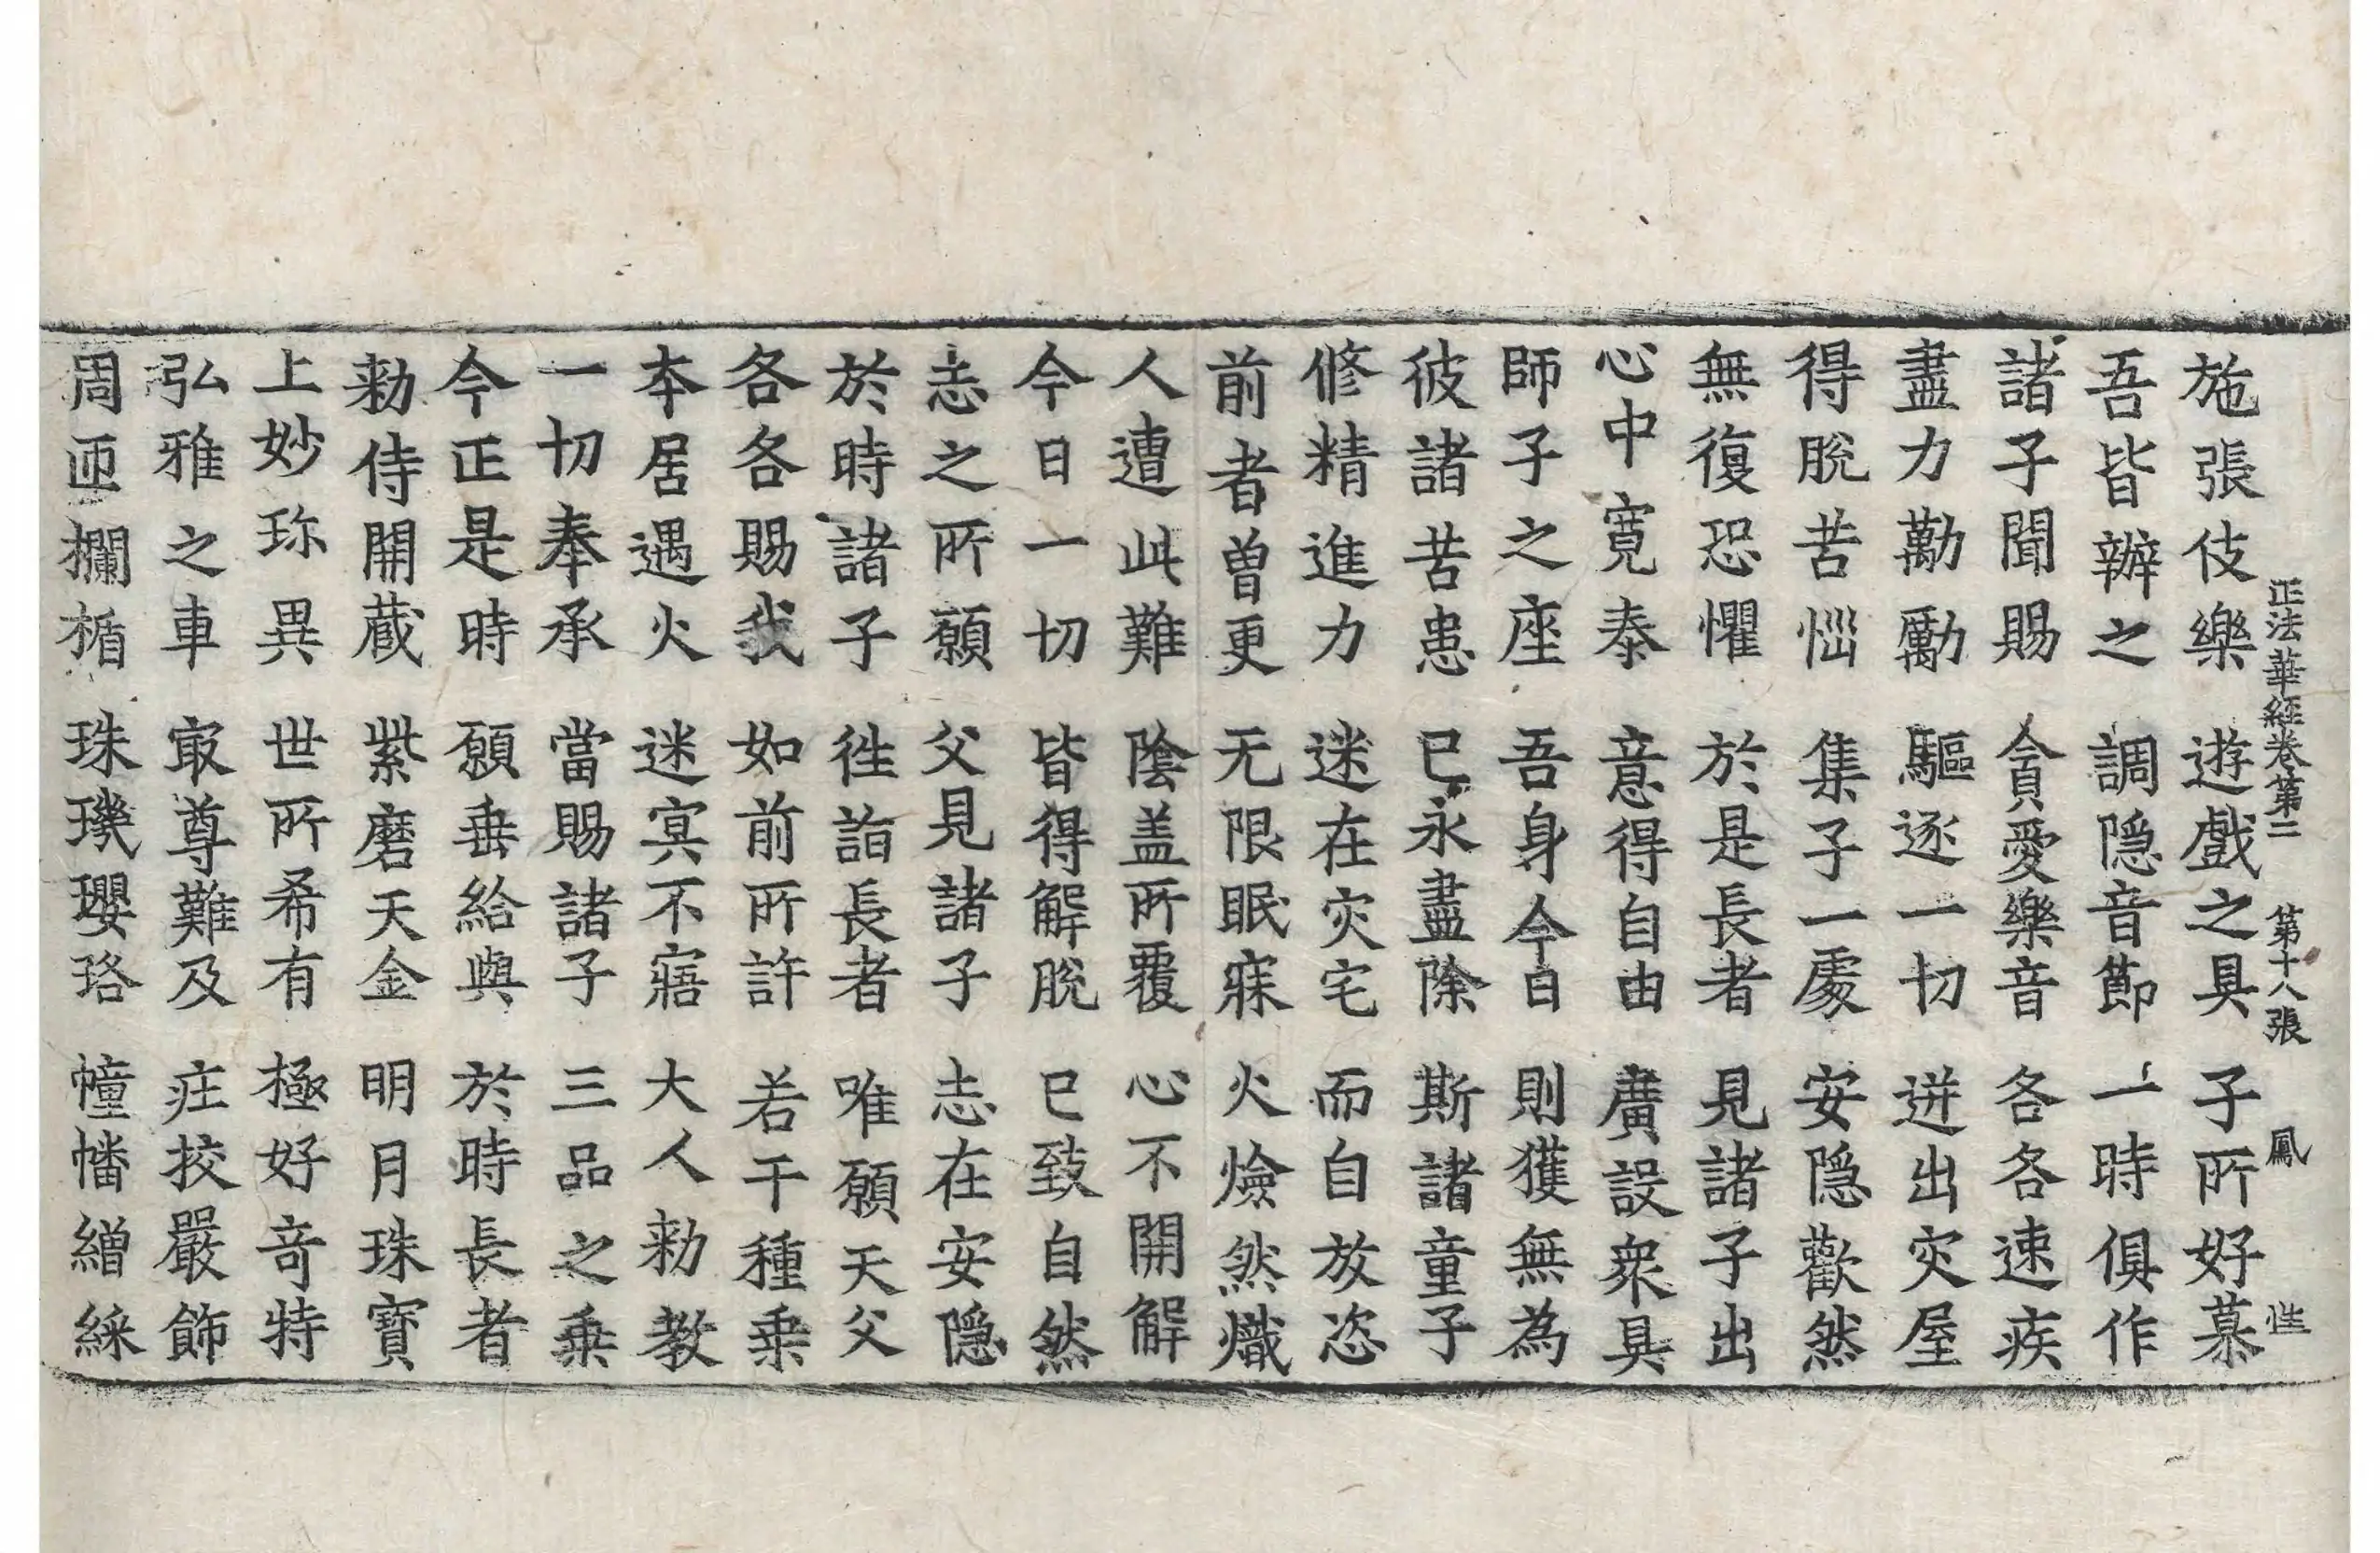 正法華經卷第二 第十八張 鳳
施張伎樂 遊戲之具 子所好慕
吾皆辦之 調隱音節 一時俱作
諸子聞賜 貪愛樂音 各各速疾
盡力勸勵 驅逐一切 迸出灾屋
得脫苦惱 集子一處 安隱歡然
無復恐懼 於是長者 見諸子出
心中寬泰 意得自由 廣設衆具
師子之座 吾身今日 則獲無為
彼諸苦患 已永盡除 斯諸童子
修精進力 迷在灾宅 而自放恣
前者曾更 无限眠寐 火燄然熾
人遭此難 陰盖所覆 心不開解
今日一切 皆得解脫 已致自然
志之所願 父見諸子 志在安隱
於時諸子 徃詣長者 唯願天父
各各賜我 如前所許 若干種乗
本居遇火 迷冥不寤 大人勑教
一切奉承 當賜諸子 三品之乗
今正是時 願垂給與 於時長者
勑侍開藏 紫磨天金 明月珠寶
上妙珎異 世所希有 極好竒特
弘雅之車 㝡尊難及 疘挍嚴飾
周匝欄楯 珠璣瓔珞 幢幡繒綵